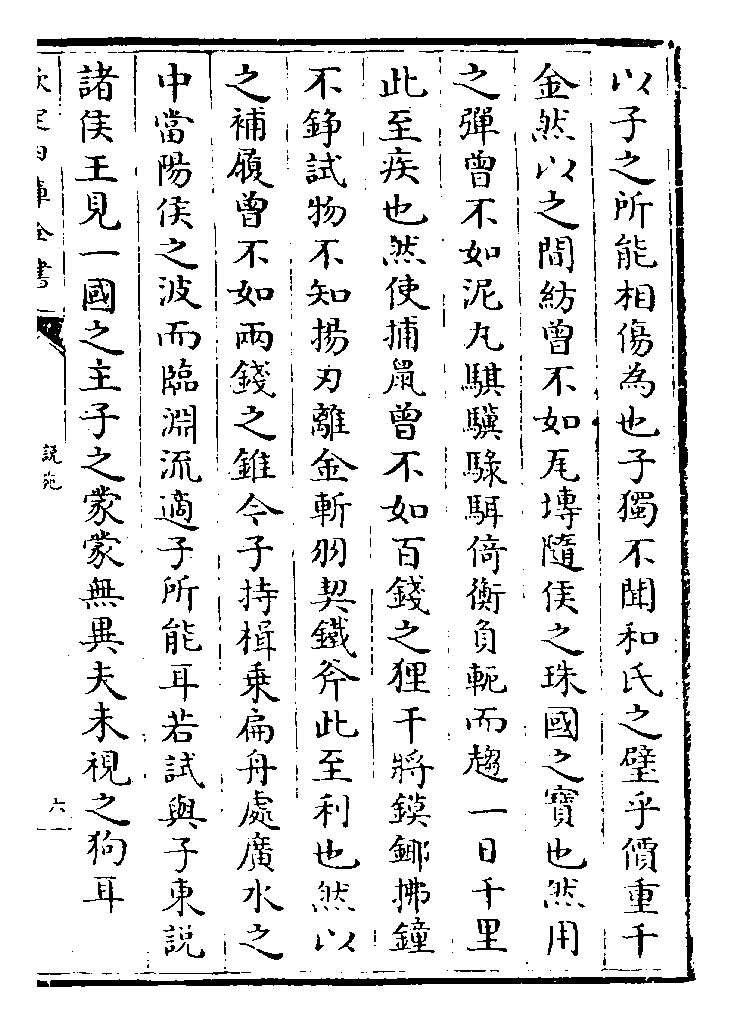 以子之所能相傷為也子獨不聞和氏之璧乎價重千
金然以之間紡曾不如瓦塼隨侯之珠國之寶也然用
之彈曾不如泥丸騏驥騄駬倚衡負軛而趨一日千里
此至疾也然使捕鼠曾不如百錢之狸干將鏌鋣拂鐘
不錚試物不知揚刃離金斬羽契鐵斧此至利也然以
之補履曾不如兩錢之錐今子持楫乗扁舟處廣水之
中當陽侯之波而臨淵流適子所能耳若試與子東説
諸侯王見一國之主子之蒙蒙無異夫未視之狗耳
欽定四庫全書
説苑
六